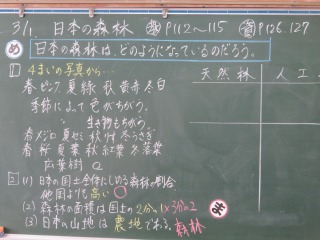 3/1. 日本の森林 教 P112～115 資 P126.127
め 日本の森林は、どのようになっているのだろう。
1 4まいの写真から…
春ピンク 夏緑 秋黄赤 冬白
季節によって色がちがう。
〃 生き物もちがう。
春メジロ 夏セミ 冬うさぎ
春桜 夏葉 秋紅葉 冬落葉
広葉樹
2 (1) 日本の国土全体にしめる森林の割合
他国より高い
(2) 森林の面積は国土の2分の1×3分の2
(3) 日本の山地は農地である。森林
ま
天然林
人工